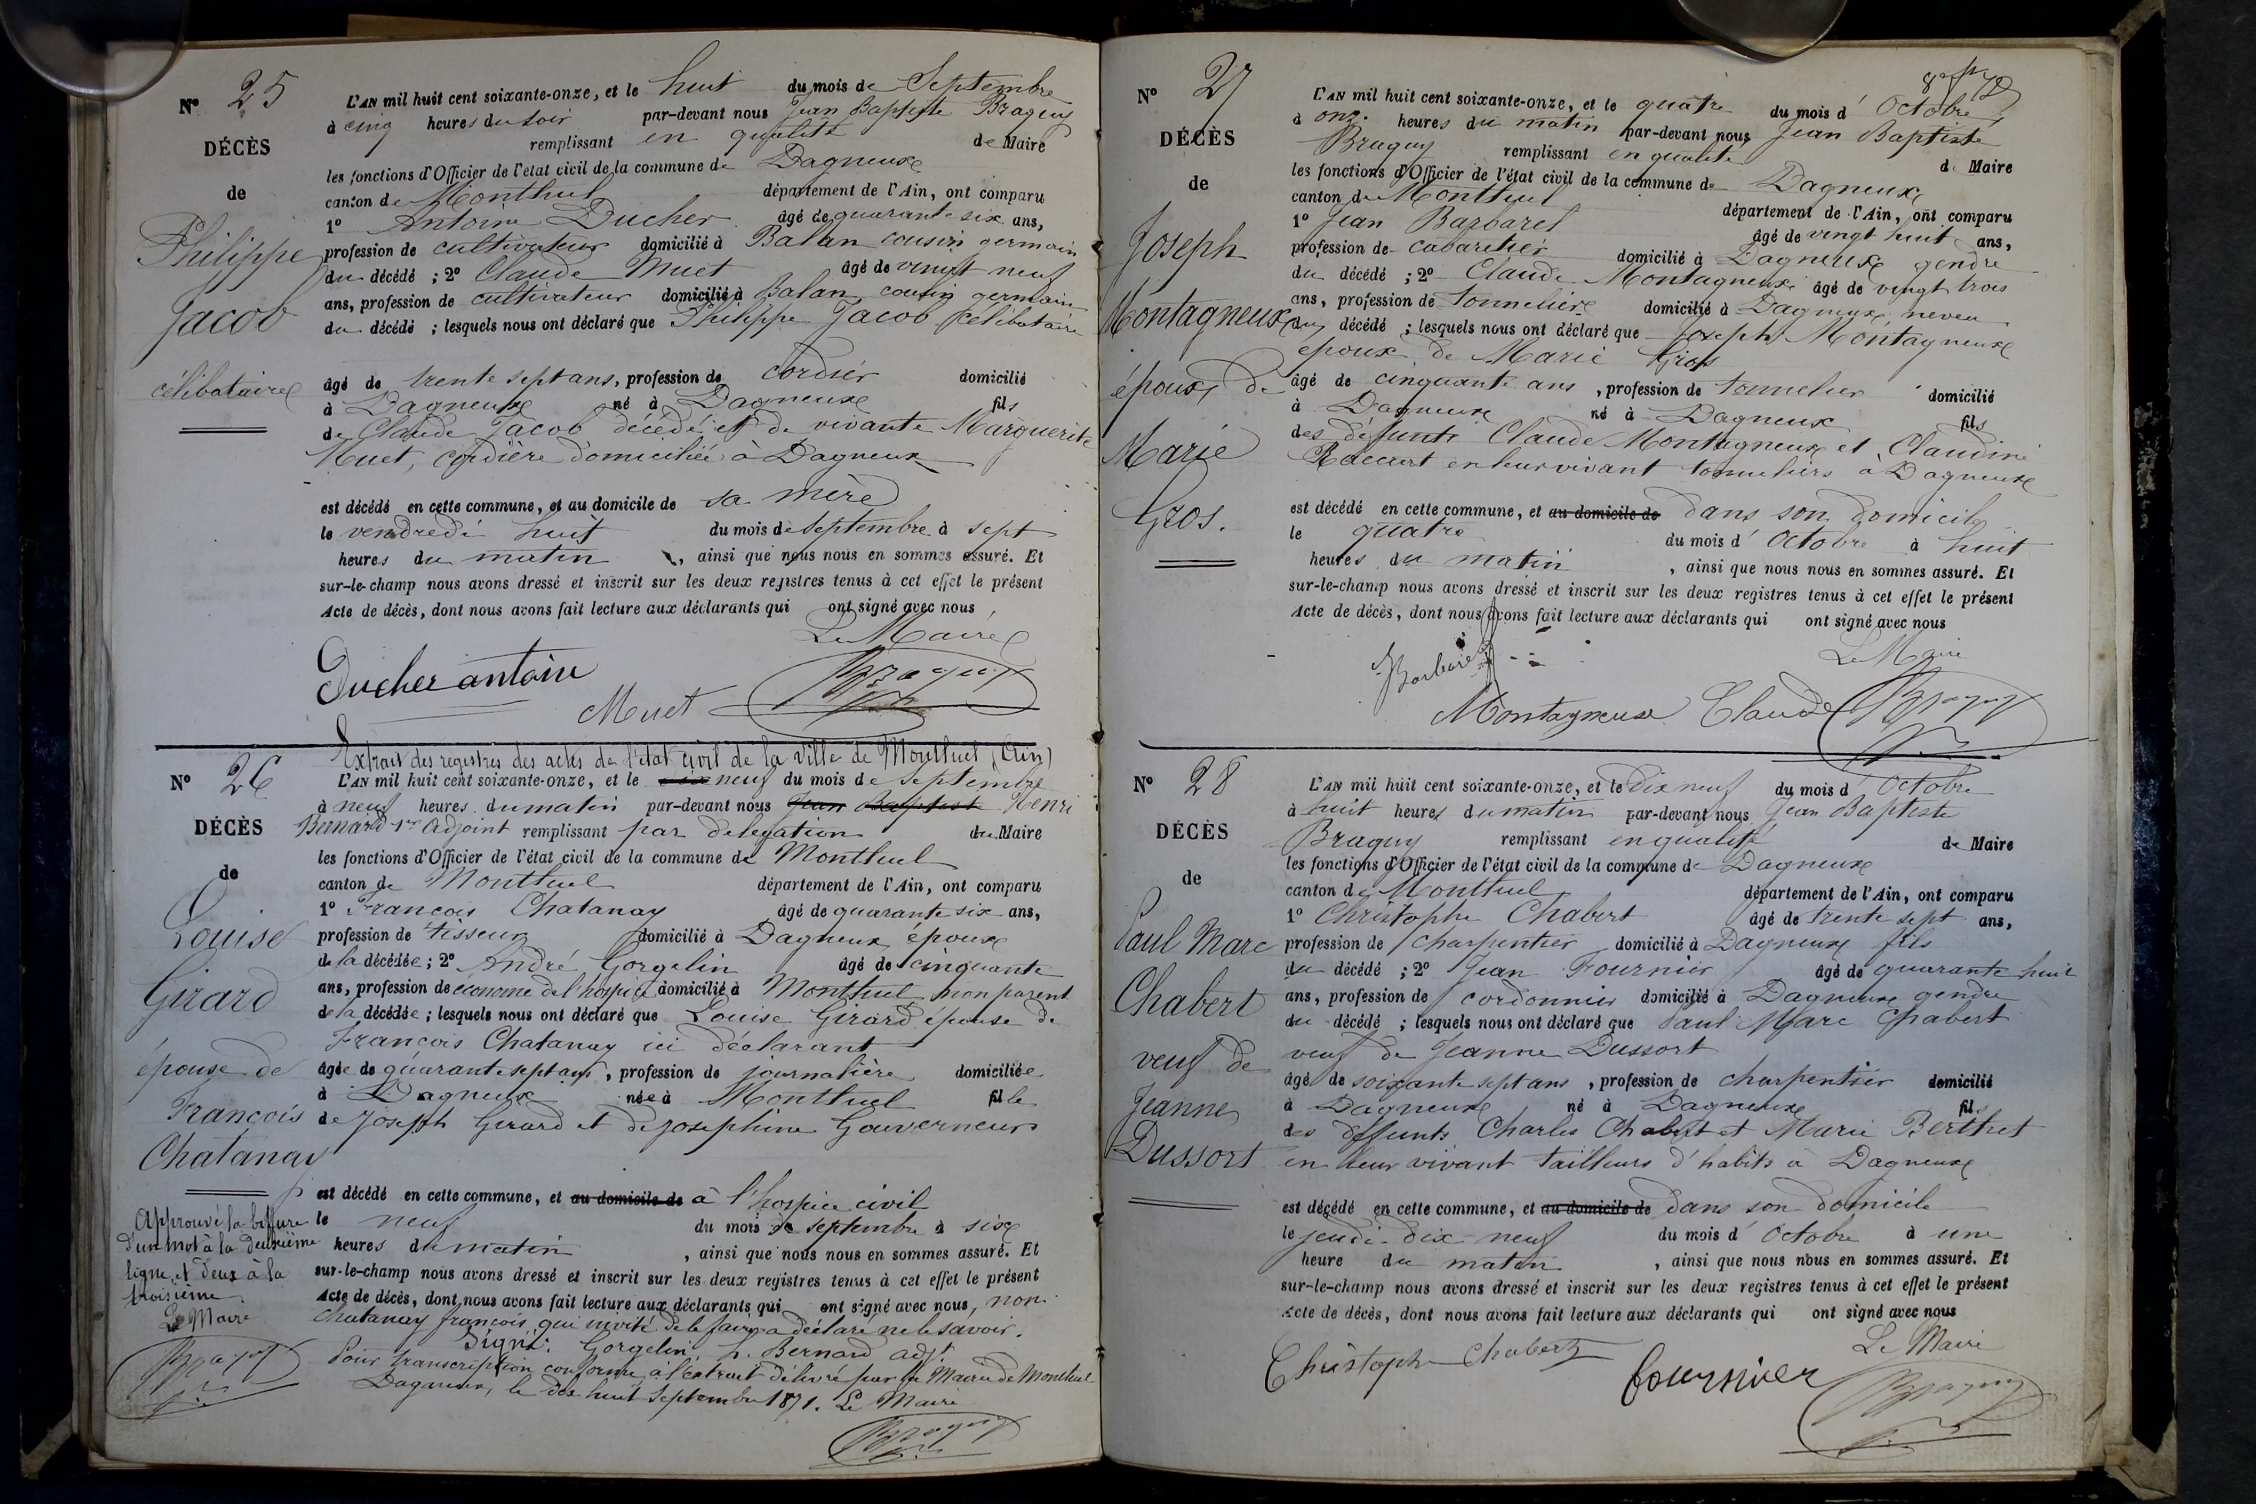 N° 25
DÉCÈS
de
Philippe
Jacob
célibataire
L'AN mil huit cent soixante-onze, et le huit du mois de Septembre
à cinq heures du soir par-devant nous Jean Baptiste Braguy
remplissant en qualité de Maire
les fonctions d'Officier de l'état civil de la commune de Dagneux
canton de Montluel département de l'Ain, ont comparu
1° Antoine Ducher âgé de quarante six ans,
profession de cultivateur domicilié à Balan cousin germain
du décédé ; 2° Claude Muet âgé de vingt neuf
ans, profession de cultivateur domicilié à Balan cousin germain
du décédé ; lesquels nous ont déclaré que Philippe Jacob célibataire
âgé de trente sept ans, profession de cordier domicilié
à Dagneux né à Dagneux fils
de Claude Jacob décédé et de vivante Marguerite
Muet, cordière domiciliée à Dagneux
est décédé en cette commune, et au domicile de sa mère
le vendredi huit du mois de Septembre à sept
heures du matin, ainsi que nous nous en sommes assuré. Et
sur-le-champ nous avons dressé et inscrit sur les deux registres tenus à cet effet le présent
Acte de décès, dont nous avons fait lecture aux déclarants qui ont signé avec nous,
Le Maire
Ducher antoine
Muet Braguy
N° 26
DÉCÈS
de
Louise
Girard
épouse de
François
Chatanay
Approuvé la biffure
d'un mot à la deuxième
ligne et deux à la
troisième
Le Maire
Braguy
Extrait des registres des actes de l'état civil de la ville de Montluel (Ain)
L'AN mil huit cent soixante-onze, et le neuf du mois de Septembre
à neuf heures du matin par-devant nous Jean Baptiste Henri
Bernard 1er adjoint remplissant par délégation du Maire
les fonctions d'Officier de l'état civil de la commune de Montluel
canton de Montluel département de l'Ain, ont comparu
1° François Chatanay âgé de quarante six ans,
profession de tisseur domicilié à Dagneux époux
de la décédée ; 2° André Gorgelin âgé de cinquante
ans, profession de économe de l'hospice domicilié à Montluel non parent
de la décédée ; lesquels nous ont déclaré que Louise Girard épouse de
François Chatanay ici déclarant
âgée de quarante sept ans, profession de journalière domiciliée
à Dagneux née à Montluel fille
de Joseph Girard et de Josephine Gouverneur
est décédé en cette commune, et au domicile de à l'hospice civil
le neuf du mois de septembre à six
heures du matin, ainsi que nous nous en sommes assuré. Et
sur-le-champ nous avons dressé et inscrit sur les deux registres tenus à cet effet le présent
Acte de décès, dont nous avons fait lecture aux déclarants qui ont signé avec nous, non
Chatanay françois qui invité de le faire a déclaré ne le savoir.
Signé: Gorgelin, h. Bernard adjt.
Pour transcription conforme à l'extrait délivré par la Mairie de Montluel
Dagneux, le dix huit Septembre 1871. Le Maire
Braguy
N° 27
DÉCÈS
de
Joseph
Montagneux
époux de
Marie
Gros.
L'AN mil huit cent soixante-onze, et le quatre du mois d'Octobre
à onze heures du matin par-devant nous Jean Baptiste
Braguy remplissant en qualité de Maire
les fonctions d'Officier de l'état civil de la commune de Dagneux
canton de Montluel département de l'Ain, ont comparu
1° Jean Barbaret âgé de vingt huit ans,
profession de cabaretier domicilié à Dagneux gendre
du décédé ; 2° Claude Montagneux âgé de vingt trois
ans, profession de tonnelier domicilié à Dagneux neveu
du décédé ; lesquels nous ont déclaré que Joseph Montagneux
époux de Marie Gros
âgé de cinquante ans, profession de tonnelier domicilié
à Dagneux né à Dagneux fils
des défunts Claude Montagneux et Claudine
en leur vivant tonneliers à Dagneux
est décédé en cette commune, et au domicile de dans son domicile
le quatre du mois d'Octobre à huit
heures du matin, ainsi que nous nous en sommes assuré. Et
sur-le-champ nous avons dressé et inscrit sur les deux registres tenus à cet effet le présent
Acte de décès, dont nous avons fait lecture aux déclarants qui ont signé avec nous
Le Maire
Barbaret
Montagneux Claude Braguy
N° 28
DÉCÈS
de
Paul Marc
Chabert
veuf de
Jeanne
Dussort
L'AN mil huit cent soixante-onze, et le dix neuf du mois d'Octobre
à huit heures du matin par-devant nous Jean Baptiste
Braguy remplissant en qualité de Maire
les fonctions d'Officier de l'état civil de la commune de Dagneux
canton de Montluel département de l'Ain, ont comparu
1° Christophe Chabert âgé de trente sept ans,
profession de charpentier domicilié à Dagneux fils
du décédé ; 2° Jean Fournier âgé de quarante huit
ans, profession de cordonnier domicilié à Dagneux gendre
du décédé ; lesquels nous ont déclaré que Paul Marc Chabert
veuf de Jeanne Dussort
âgé de soixante sept ans, profession de charpentier domicilié
à Dagneux né à Dagneux fils
des deffunts Charles Chabert et Marie Berthet
en leur vivant tailleurs d'habits à Dagneux
est décédé en cette commune, et au domicile de dans son domicile
le jeudi dix neuf du mois d'Octobre à une
heure du matin, ainsi que nous nous en sommes assuré. Et
sur-le-champ nous avons dressé et inscrit sur les deux registres tenus à cet effet le présent
Acte de décès, dont nous avons fait lecture aux déclarants qui ont signé avec nous
Le Maire
Christophe Chabert fournier Braguy